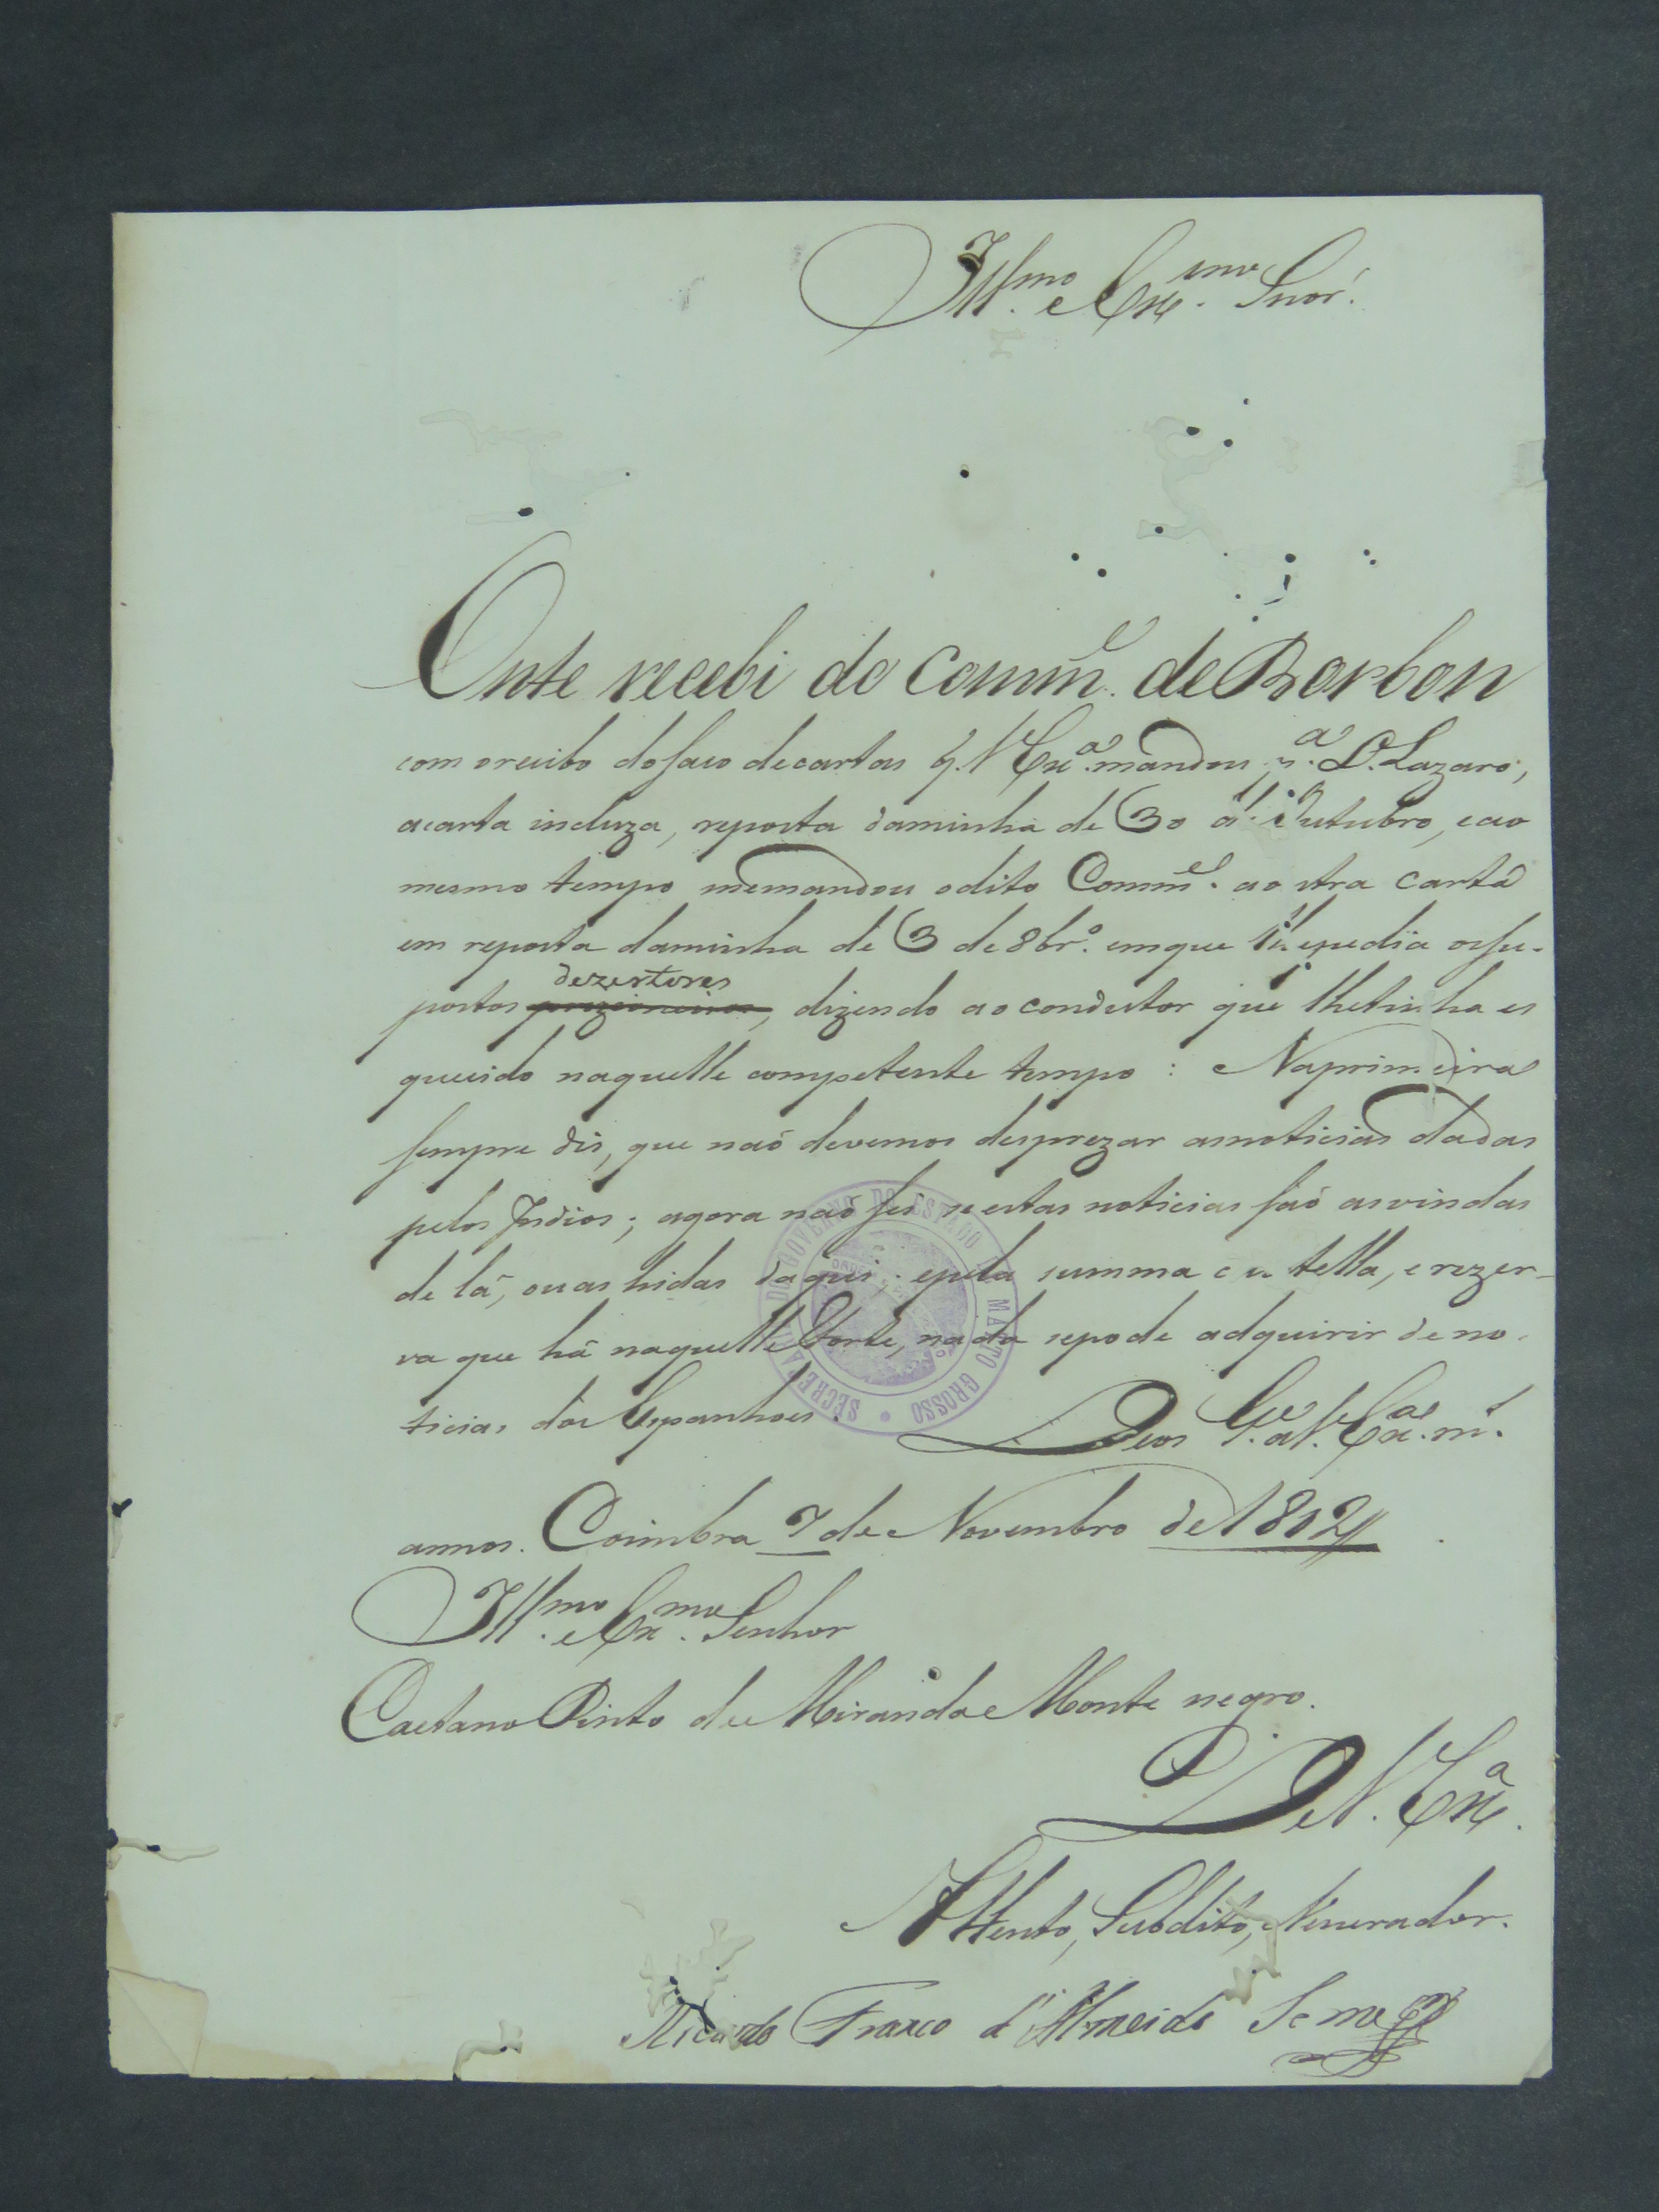 Illmo. e Exmo. Snor.
Onte recebi do Comme. de Borbon
com orecibo dosaco decartas q. V Exa. mandou pa. D. Lazaro,
acarta incluza, reposta daminha de 30 d'Outubro, eao
mesmo tempo memandou odito Comme. aostra carta
em reposta daminha de 3 de 8bro. emque lhepedia osSu-
postos prezioneiros dezertores, dizendo aocondutor que lhetinha es
quecido naquelle competente tempo : Naprimeira
sempre dis, que naõ devemos desprezar asnoticias dadas
pelos Indios; agora naõ sei seestas noticias saõ asvindas
de lá, ouas hidas daqui; epela summa cautella, erezer-
va que há naquelle Forte, nada sepode adquirir deno-
ticias dos Espanhoes.
Deos Ge. a V. Exa. ms.
annos. Coimbra 7 de Novembro de 1802//
Illmo. e Exmo. Senhor
Caetano Pinto de Miranda Monte negro.
De V. Exa.
Attento, Subdito, Venerador.
Ricardo Franco d'Almeida Serra
SECRETARIA DO GOVERNO DO ESTADO DE MATTO GROSSO